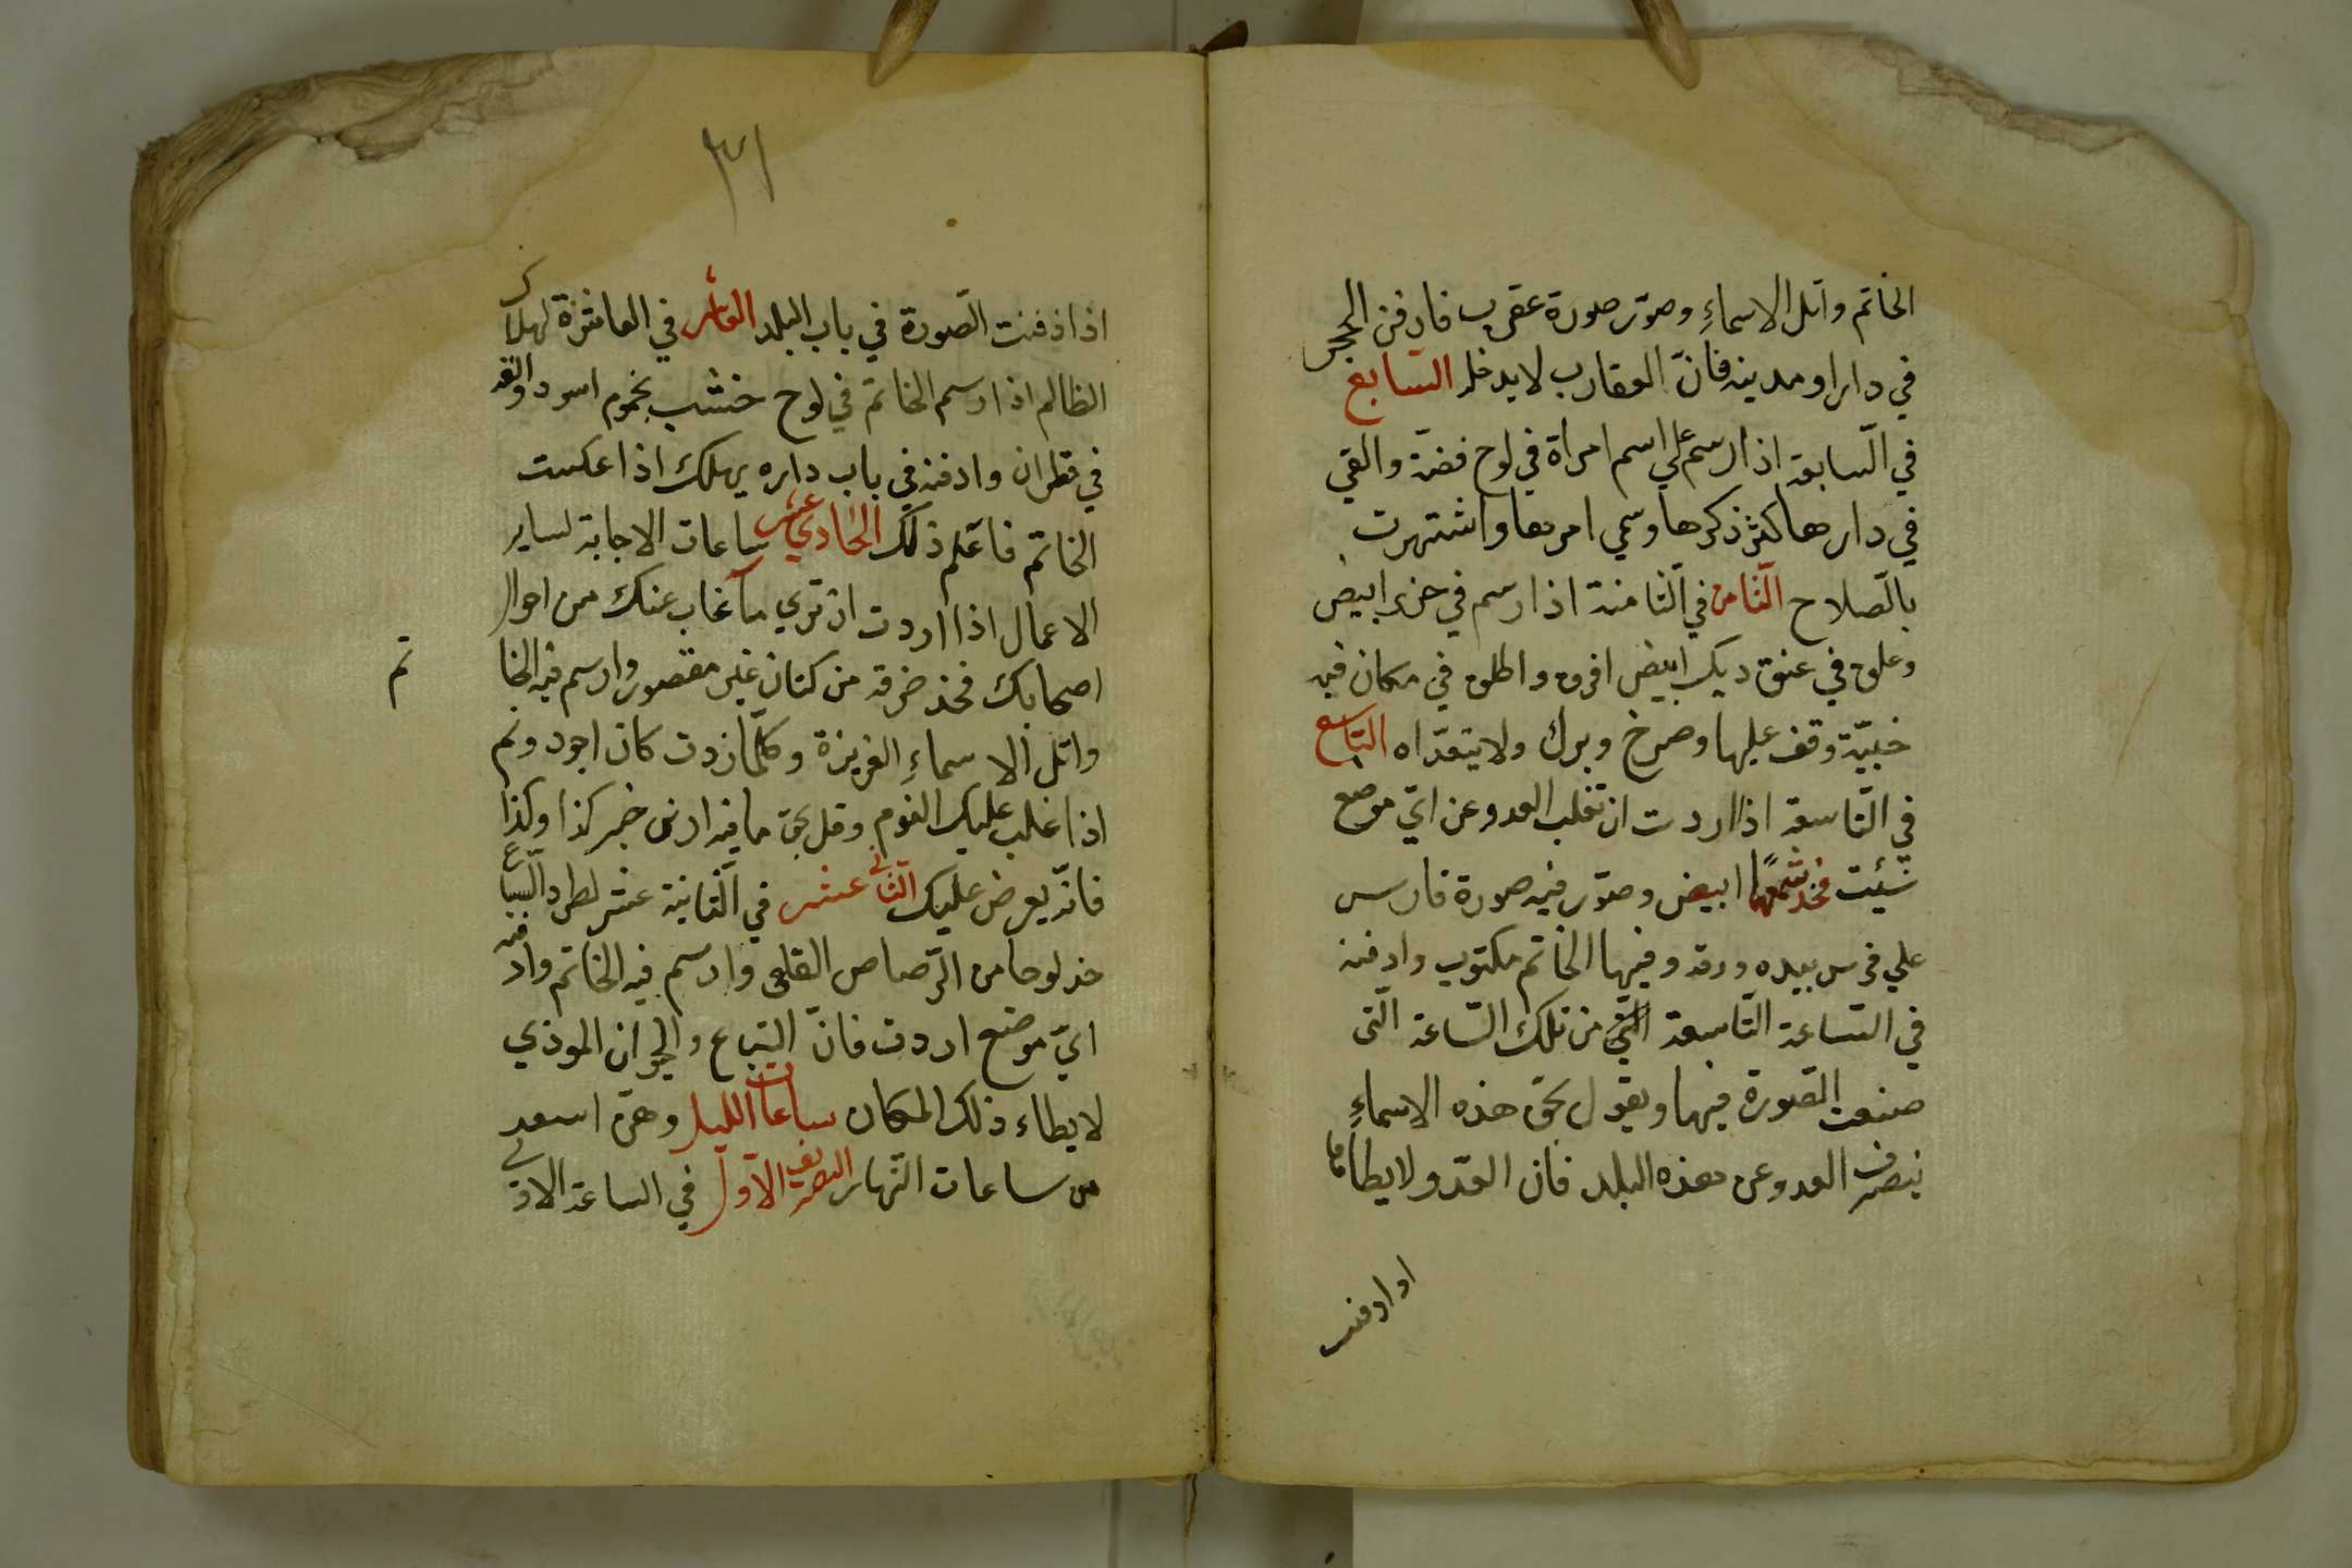 الخاتم واتل الاسماءِ وصوّر صورة عقرب فادفن الحجر
في دار او مدينه فانّ العقارب لا يدخله السّابع
في السّابعة اذا رسم علي اسم امراة في لوح فضّة والقي
في دارها كثر ذكرها وسمي امرها واشتهرت
بالصّلاح الثّامن في الثّامنة اذا رسم في ابيض
وعلق في عنق ديك ابيض افرق واطلق في مكان فيه
خبيّة وقف عليها وصرخ وبرك ولا يتعدّاه التّاسع
في التّاسعة اذا اردت ان تقلب العدو عن ايّ موضع
شئت فخذ شمعًا ابيض وصوّر فيه صورة فارس
علي فرس بيده ورقه وفيها الخاتم مكتوب وادفنه
في السّاعة التّاسعة من تلك السّاعة الّتى
صنعت الصّورة فيها ويقول بحق هذه الاسماءِ
ينصرف العدو عن هذه البلد فان العدّو لا يطا
او ادفنه
٣١
اذا دفنت الصّورة في باب البلد العاشر في العاشرة لهلاك
الظالم اذا رسم الخاتم في لوح خشب اسود والقه
في قطران وادفنه في باب داره يهلك اذا عكست
الخاتم فاعلم ذلك الحادي عشر ساعات الاجابة لساير
الاعمال اذا اردت ان تري ما غاب عنك من احوال
اصحابك فخذ خرقة من كتان غير مقصور وارسم فيه الخا
تم
واتل الاسماءِ العزيزة وكلّما زدت كان اجود ونم
اذا غلب عليك النوم وقل بحق ما فيه ارنى خبر كذا وكذا
فانّه يعرض عليك الثّانى عشر في الثّانية عشر لطرد السّباع
خذ لوحا من الرّصاص القلعى وارسم فيه الخاتم وادفنه
ايّ موضع اردت فانّ السّباع والحيوان الموذي
لا يطاء ذلك المكان ساعات الليل وهىّ اسعد
من ساعات النّهار التصريف الاوّل في الساعة الاولى